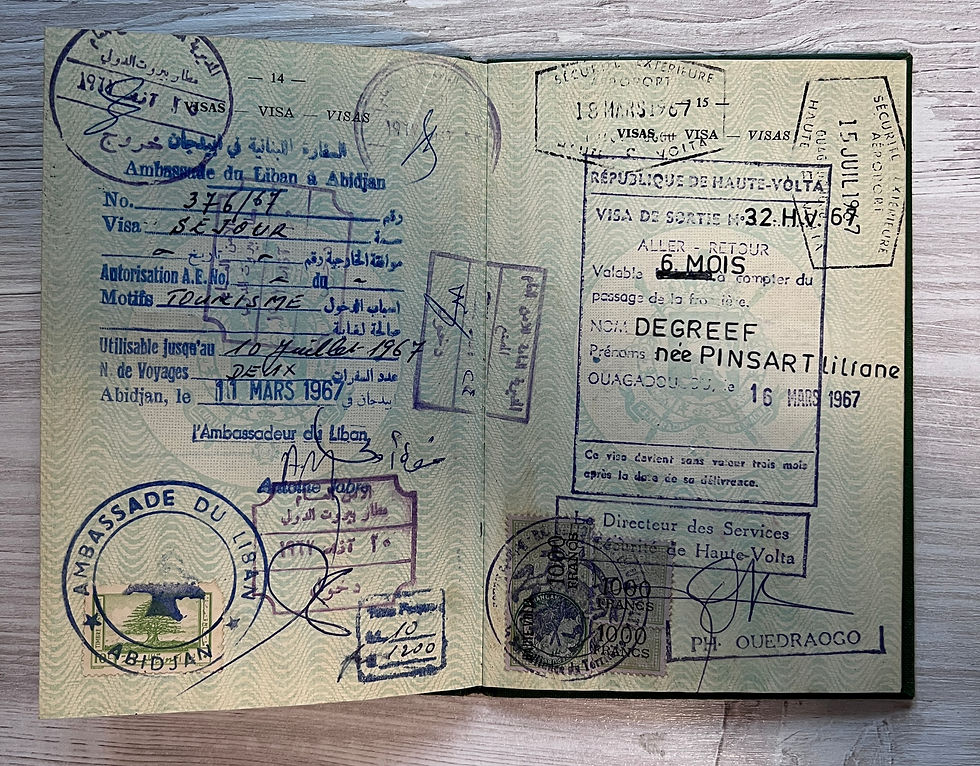 — 14 —
VISAS — VISA — VISAS
مطار بيروت الدولي
خروج
السفارة اللبنانية في ابيدجان
Ambassade du Liban à Abidjan
No. 376/67 رقم
Visa SÉJOUR سمة
موافقة الخارجية رقم - تاريخ -
Autorisation A.E. No. - du -
Motifs TOURISME اسباب الدخول
صالحة لغاية
Utilisable jusqu'au 10 Juillet 1967
N. de Voyages DEUX عدد السفرات
Abidjan, le 11 MARS 1967 ابيدجان في
l'Ambassadeur du Liban
AMBASSADE DU LIBAN
ABIDJAN
مطار بيروت الدولي
٢٠ آذار ١٩٦٧
دخول
10
1200
SÉCURITÉ EXTÉRIEURE
AÉROPORT
18 MARS 1967
HTE VOLTA
15 —
VISAS — VISA — VISAS
SÉCURITÉ EXTÉRIEURE
AÉROPORT
15 JUIL 1967
HAUTE
RÉPUBLIQUE DE HAUTE-VOLTA
VISA DE SORTIE No 32.H.V. 67
ALLER - RETOUR
6 MOIS
Valable à compter du
passage de la frontière.
NOM DEGREEF
Prénoms née PINSART Liliane
OUAGADOUGOU, le 16 MARS 1967
Ce visa devient sans valeur trois mois
après la date de sa délivrance.
Le Directeur des Services
Sécurité de Haute-Volta
1000
FRANCS
1000
FRANCS
1000
PH. OUEDRAOGO